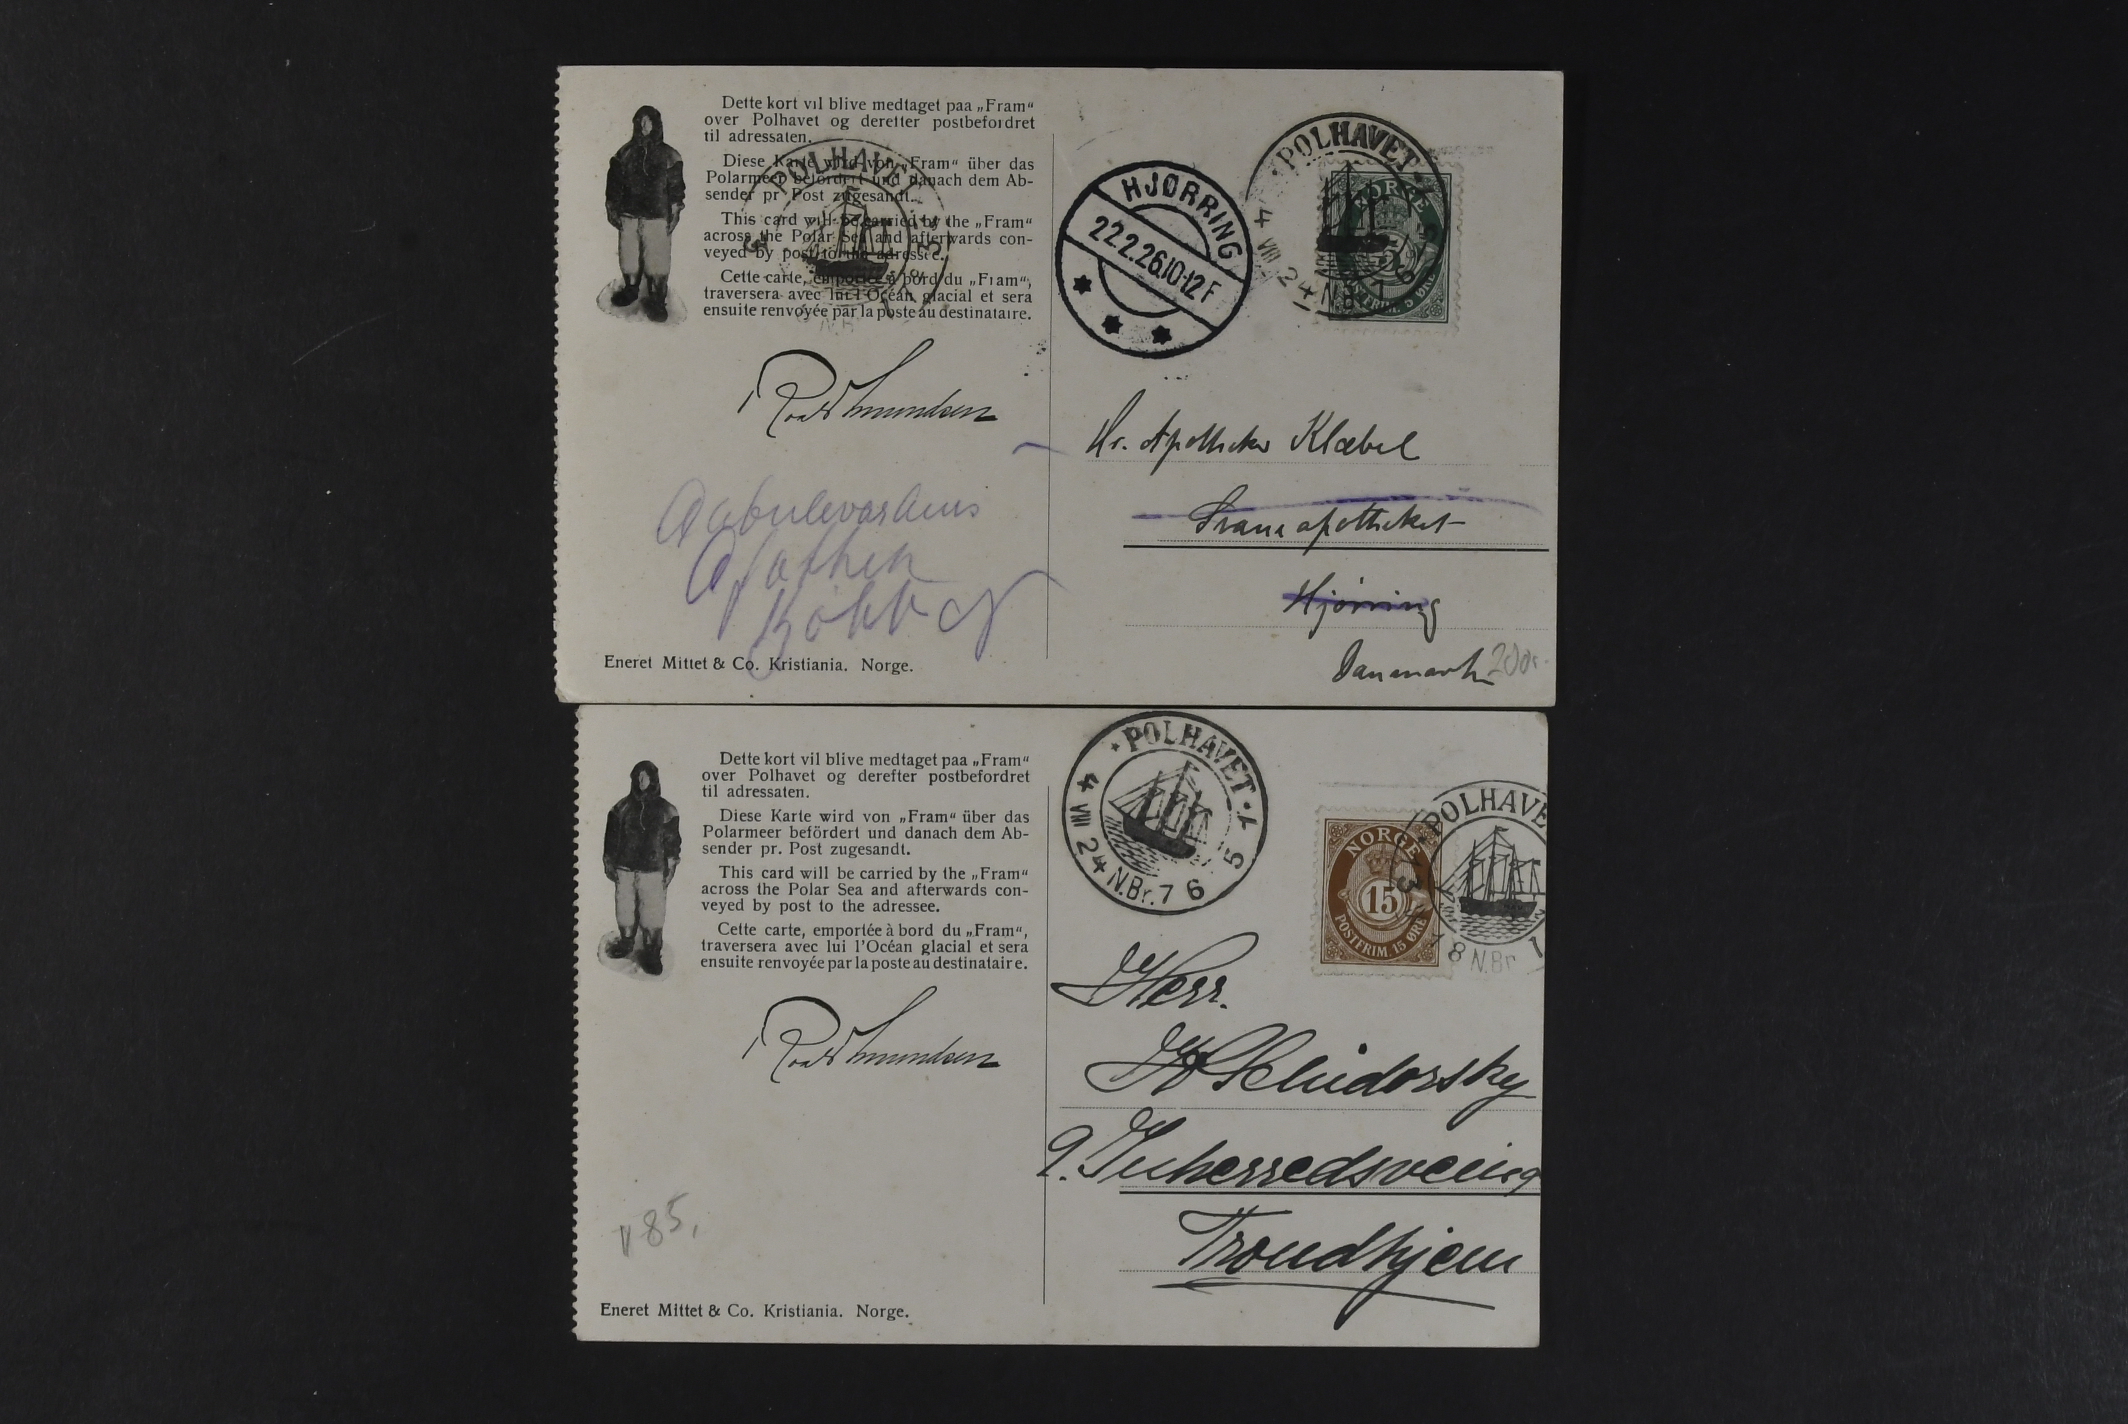 Dette kort vil blive medtaget paa „Fram“
over Polhavet og derefter postbefordret
til adressaten.
Diese Karte wird von „Fram“ über das
Polarmeer befördert und danach dem Ab-
sender pr. Post zugesandt.
This card will be carried by the „Fram“
across the Polar Sea and afterwards con-
veyed by post to the adressee.
Cette carte, emportée à bord du „Fram“,
traversera avec lui l'Océan glacial et sera
ensuite renvoyée par la poste au destinataire.
POLHAVET
Roald Amundsen
Eneret Mittet & Co. Kristiania. Norge.
HJØRRING
22.2.26.10-12 F
POLHAVET
4 VIII 24 N.Br. 76
NORGE
5
POSTFRIM. 5 ØRE
Hr. Apotheker Klæbel
Svaneapotheket
Hjørring
Danmark
Dette kort vil blive medtaget paa „Fram“
over Polhavet og derefter postbefordret
til adressaten.
Diese Karte wird von „Fram“ über das
Polarmeer befördert und danach dem Ab-
sender pr. Post zugesandt.
This card will be carried by the „Fram“
across the Polar Sea and afterwards con-
veyed by post to the adressee.
Cette carte, emportée à bord du „Fram“,
traversera avec lui l'Océan glacial et sera
ensuite renvoyée par la poste au destinataire.
Roald Amundsen
85,
Eneret Mittet & Co. Kristiania. Norge.
POLHAVET
4 VIII 24 N.Br. 76
NORGE
15
POSTFRIM. 15 ØRE
POLHAVE
8 N.Br
Herr.
Trondhjem